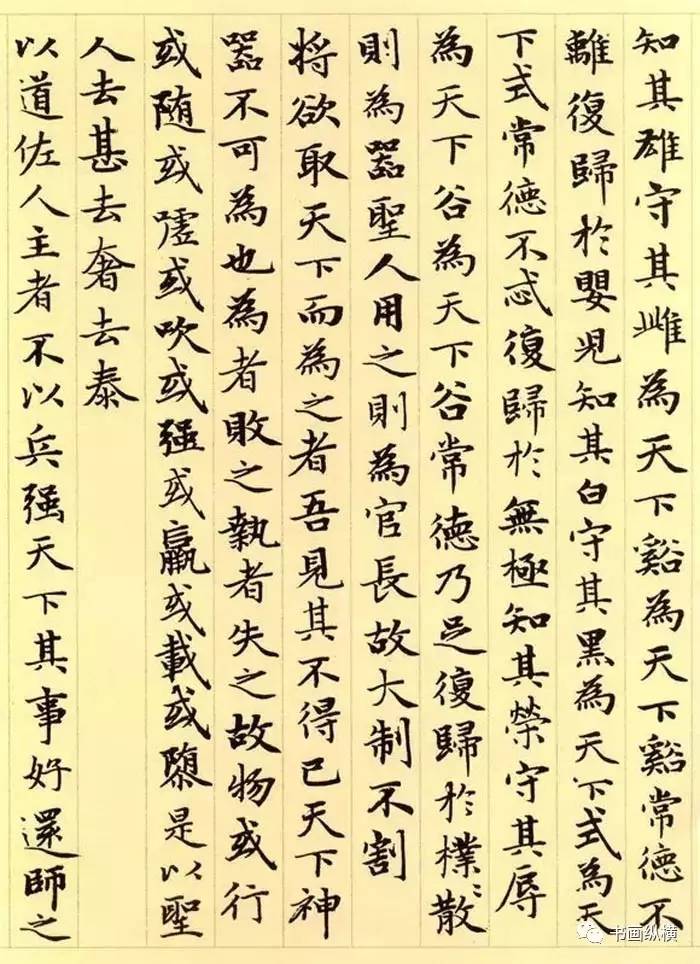 知其雄守其雌為天下谿為天下谿常德不
離復歸於嬰兒知其白守其黑為天下式為天
下式常德不忒復歸於無極知其榮守其辱
為天下谷為天下谷常德乃足復歸於樸〻散
則為器聖人用之則為官長故大制不割
將欲取天下而為之者吾見其不得已天下神
器不可為也為者敗之執者失之故物或行
或随或噓或吹或强或羸或載或隳是以聖
人去甚去奢去泰
以道佐人主者不以兵强天下其事好還師之
书画纵横